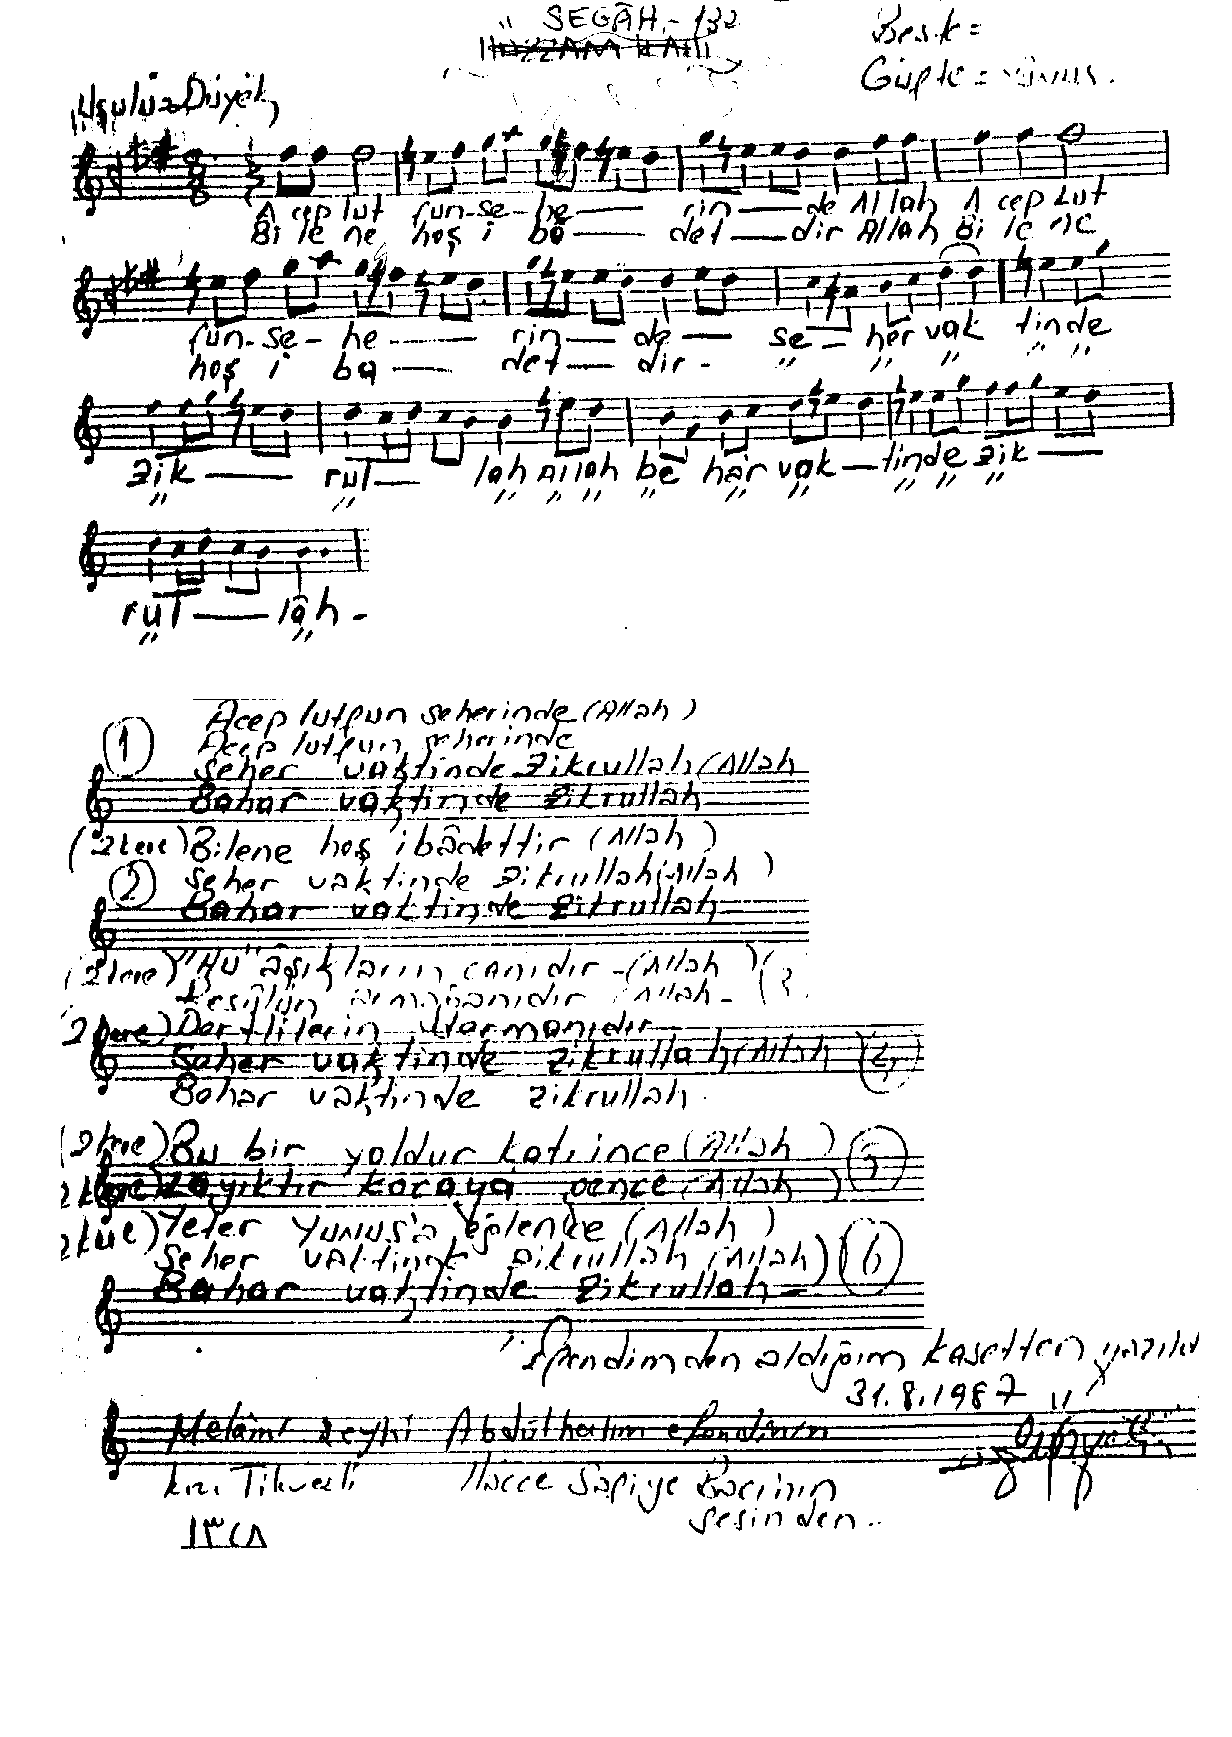 SEGÂH - 132
HÜZZAM İLAHİ
Beste =
Güfte = Yunus.
Usulü = Düyek
A cep lut fun-se-he — rin — de Allah A cep Lut
Bi le ne hoş i bâ — det — dir Allah Bi le ne
fun-se-he — rin — de — se — her vak tinde
hoş i ba — det — dir - " " " " "
zik — rut — lah Allah be har vak — tinde zik —
" " " " " " " " " " "
rut — lâh -
" "
① Acep lutfun seherinde (Allah)
Acep lutfun seherinde
Seher vaktinde zikrullah (Allah
Bahar vaktinde zikrullâh
(2 kere) Bilene hoş ibâdettir (Allah)
② Seher vaktinde zikrullah (Allah)
Bahar vaktinde zikrullah
(2 kere) "Hû" âşıkların canıdır - (Allah) (3
(Allah -
(2 kere) Dertlilerin dermanıdır
Seher vaktinde zikrullah (Allah (4)
Bahar vaktinde zikrullah
(2 kere) Bu bir yoldur kati ince (Allah) (5)
Layıktır kocaya gence (Allah)
2 kere) Yeter Yunus'a eğlence (Allah)
Seher vaktinde zikrullah (Allah) (6)
Bahar vaktinde zikrullah -
Efendimden aldığım kasetten yazıldı
31.8.1987
Melâmi şeyhi Abdülhalim efendinin
kızı Tikveşli Hacce Safiye Bacının
sesinden..
١٣٤٨